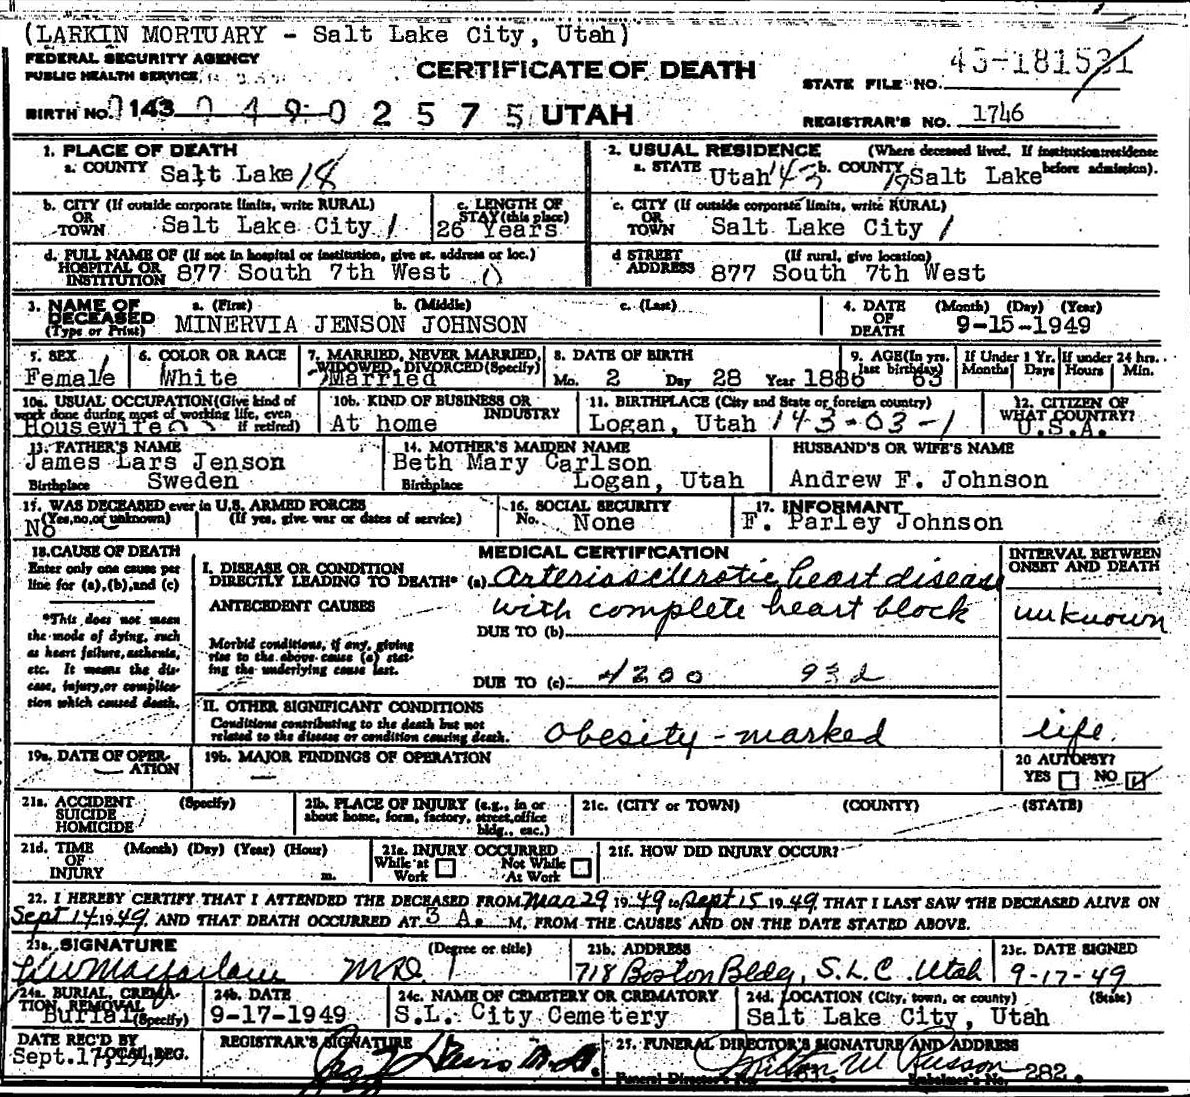 (LARKIN MORTUARY - Salt Lake City, Utah)
FEDERAL SECURITY AGENCY
PUBLIC HEALTH SERVICE
CERTIFICATE OF DEATH
STATE FILE NO. 43-181531
BIRTH NO. 143 0 4 9 0 2 5 7 5 UTAH
REGISTRAR'S NO. 1746
1. PLACE OF DEATH
a. COUNTY Salt Lake 18
2. USUAL RESIDENCE (Where deceased lived. If institution: residense before admission).
a. STATE Utah 43 b. COUNTY 18 Salt Lake
b. CITY (If outside corporate limits, write RURAL) OR TOWN Salt Lake City 1
c. LENGTH OF STAY (this place) 26 Years
c. CITY (If outside corporate limits, write RURAL) OR TOWN Salt Lake City 1
d. FULL NAME OF (If not in hospital or institution, give st. address or loc.) HOSPITAL OR INSTITUTION 877 South 7th West 0
d STREET ADDRESS (If rural, give location) 877 South 7th West
3. NAME OF DECEASED (Type or Print) a. (First) b. (Middle) c. (Last)
MINERVIA JENSON JOHNSON
4. DATE OF DEATH (Month) (Day) (Year) 9-15-1949
5. SEX Female
6. COLOR OR RACE White
7. MARRIED, NEVER MARRIED, WIDOWED, DIVORCED (Specify) Married
8. DATE OF BIRTH Mo. 2 Day 28 Year 1886
9. AGE (In yrs. last birthday) 63
If Under 1 Yr. Months Days
If under 24 hrs. Hours Min.
10a. USUAL OCCUPATION (Give kind of work done during most of working life, even if retired) Housewife
10b. KIND OF BUSINESS OR INDUSTRY At home
11. BIRTHPLACE (City and State or foreign country) Logan, Utah 143-03-1
12. CITIZEN OF WHAT COUNTRY? U.S.A.
13. FATHER'S NAME James Lars Jenson
Birthplace Sweden
14. MOTHER'S MAIDEN NAME Beth Mary Carlson
Birthplace Logan, Utah
HUSBAND'S OR WIFE'S NAME
Andrew F. Johnson
15. WAS DECEASED ever in U.S. ARMED FORCES
(Yes, no, or unknown) (If yes, give war or dates of service) No
16. SOCIAL SECURITY No. None
17. INFORMANT F. Parley Johnson
18. CAUSE OF DEATH
Enter only one cause per line for (a), (b), and (c)
*This does not mean the mode of dying, such as heart failure, asthenia, etc. It means the disease, injury, or complication which caused death.
MEDICAL CERTIFICATION
INTERVAL BETWEEN ONSET AND DEATH
I. DISEASE OR CONDITION DIRECTLY LEADING TO DEATH* (a) Arteriosclerotic heart disease
ANTECEDENT CAUSES with complete heart block unknown
DUE TO (b)
Morbid conditions, if any, giving rise to the above cause (a) stating the underlying cause last.
DUE TO (c) 4200 93d
II. OTHER SIGNIFICANT CONDITIONS
Conditions contributing to the death but not related to the disease or condition causing death. obesity - marked life.
19a. DATE OF OPERATION —
19b. MAJOR FINDINGS OF OPERATION —
20 AUTOPSY? YES NO
21a. ACCIDENT SUICIDE HOMICIDE (Specify)
21b. PLACE OF INJURY (e.g., in or about home, form, factory, street, office bldg., eac.)
21c. (CITY or TOWN) (COUNTY) (STATE)
21d. TIME OF INJURY (Month) (Day) (Year) (Hour) m.
21e. INJURY OCCURRED While at Work Not While At Work
21f. HOW DID INJURY OCCUR?
22. I HEREBY CERTIFY THAT I ATTENDED THE DECEASED FROM Mar 29 1949 to Sept 15 1949, THAT I LAST SAW THE DECEASED ALIVE ON
Sept 14 1949, AND THAT DEATH OCCURRED AT 3 A. M., FROM THE CAUSES AND ON THE DATE STATED ABOVE.
23a. SIGNATURE (Degree or title) Macfarlane MD
23b. ADDRESS 718 Boston Bldg, S.L.C. Utah
23c. DATE SIGNED 9-17-49
24a. BURIAL, CREMATION, REMOVAL (Specify) Burial
24b. DATE 9-17-1949
24c. NAME OF CEMETERY OR CREMATORY S.L. City Cemetery
24d. LOCATION (City, town, or county) (State) Salt Lake City, Utah
DATE REC'D BY LOCAL REG. Sept. 17, 1949
REGISTRAR'S SIGNATURE
25. FUNERAL DIRECTOR'S SIGNATURE AND ADDRESS
Milton W Russon
Funeral Director's No. Embalmer's No. 282.